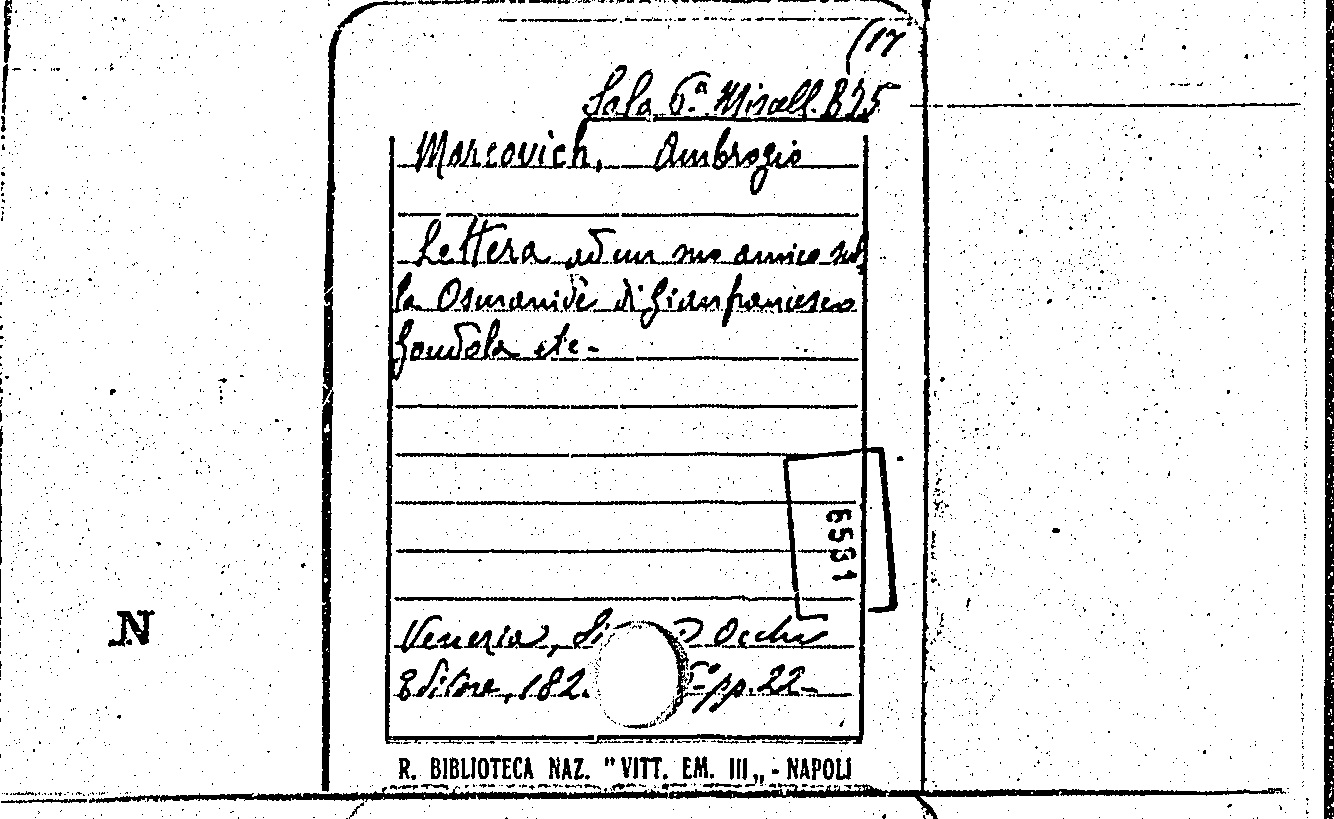 (17
Sala 6.ª Miscell. B25
Marcovich, Ambrogio
Lettera ad un suo amico sul-
la Osmanide di Gianfrancesco
Gondola etc.
6531
Venezia, Occhi
Editore, 182 pp. 22
N
R. BIBLIOTECA NAZ. "VITT. EM. III„ - NAPOLI